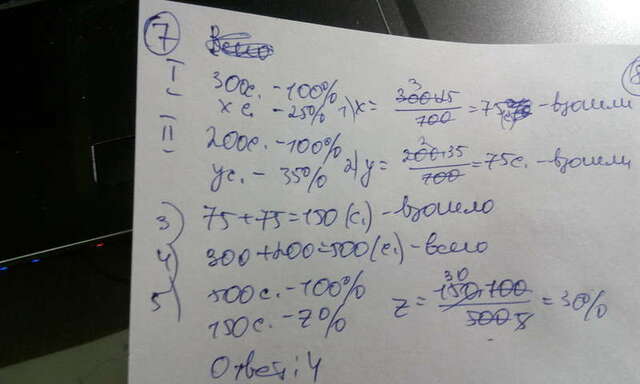 7 Всего
I 300с. - 100%
хс. - 25% 1) х = 300·25 / 100 = 75 (с.) - взошли
3
II 200с. - 100%
ус. - 35% 2) у = 200·35 / 100 = 75с. - взошли
3) 75 + 75 = 150 (с.) - взошло
4) 300 + 200 = 500 (с.) - всего
5) 500с. - 100%
150с. - z% z = 150·100 / 500 5 = 30%
30
Ответ: 4